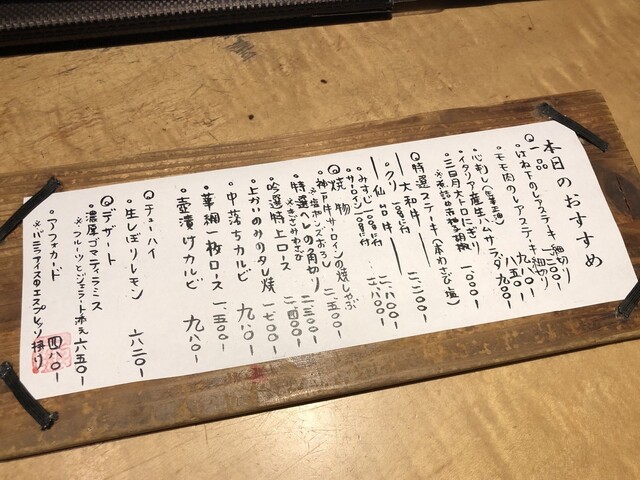 本日のおすすめ
◎一品
・はね下のレアステーキ細切り 一二〇〇-
・モモ肉のレアステーキ細切り 九八〇-
・心刺し 八五〇-
・イタリア産生ハムサラダ 九〇〇-
・三日月大トロにぎり 一〇〇〇-
◎特選ステーキ(本わさび塩)
―大和牛―
・クリ 100g付 二二〇〇-
―仙台牛―
・みすじ 100g付 二八〇〇-
・サーロイン 100g付 二八〇〇-
◎焼物
・神戸牛サーロインの焼しゃぶ 二五〇〇-
・特選ヘレの角切り 二三〇〇-
※きざみわさび
・吟選特上ロース 二四〇〇-
・上かいのみのタレ焼 一七〇〇-
・中落ちカルビ 九八〇-
・華網一枚ロース 一五〇〇-
・壺漬けカルビ 九八〇-
◎チューハイ
・生しぼりレモン 六二〇-
◎デザート
・濃厚ゴマティラミス 六五〇-
※フルーツとジェラート添え
・アフォガード 四八〇-
※バニラアイスのエスプレッソ掛け